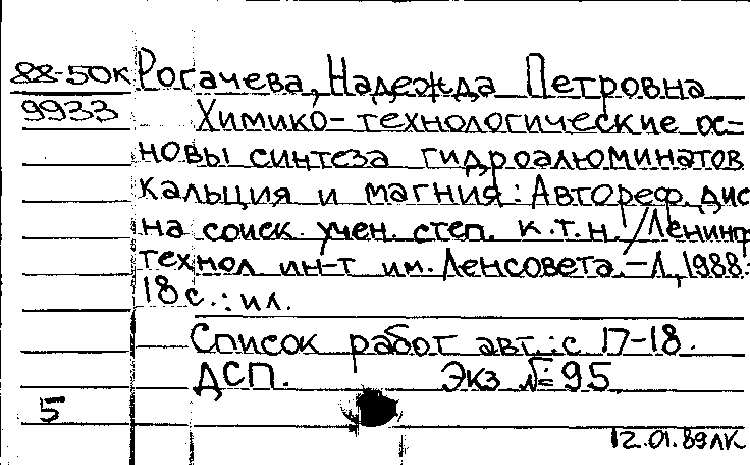 88-50К Рогачева, Надежда Петровна
9933 Химико-технологические ос-
новы синтеза гидроалюминатов
кальция и магния: Автореф. дис
на соиск. учен. степ. к.т.н. /Ленингр
технол ин-т им. Ленсовета. – Л, 1988.
18 с.: ил.
Список работ авт.: с 17-18.
ДСП. Экз № 95
5
12.01.89ЛК